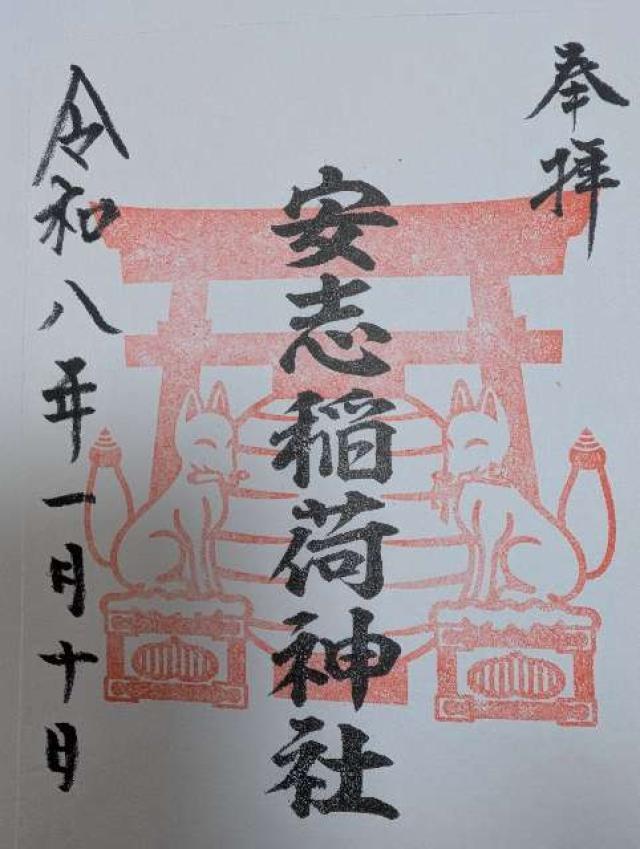 奉拝
安志稲荷神社
令和八年一月十日